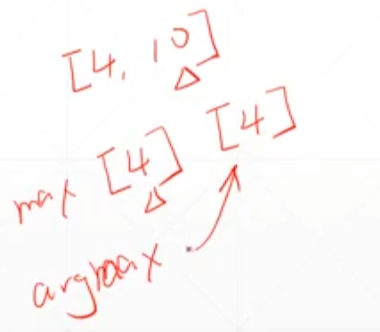 [4, 10]
max [4] [4]
argmax